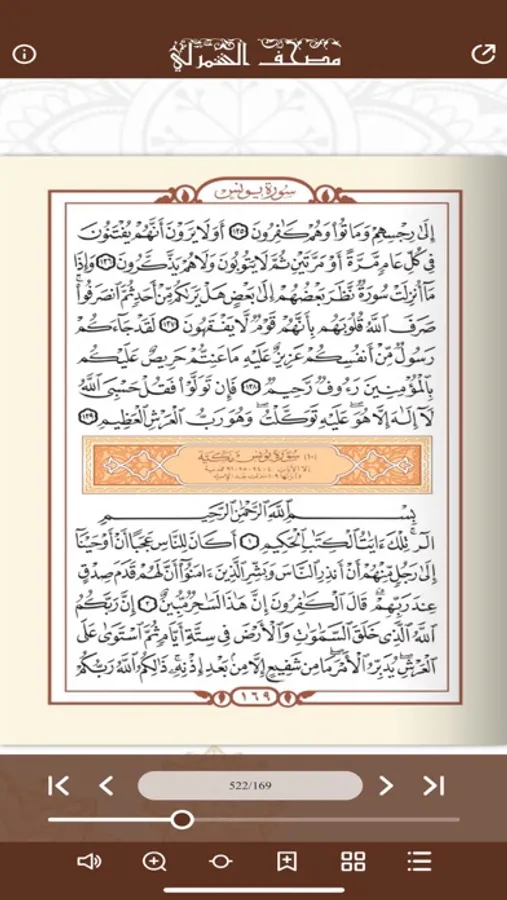 مصحف الشمرلي
سورة يونس
إِلَىٰ رِجْسِهِمْ وَمَاتُوا۟ وَهُمْ كَٰفِرُونَ ١٢٥ أَوَلَا يَرَوْنَ أَنَّهُمْ يُفْتَنُونَ
فِى كُلِّ عَامٍ مَّرَّةً أَوْ مَرَّتَيْنِ ثُمَّ لَا يَتُوبُونَ وَلَا هُمْ يَذَّكَّرُونَ ١٢٦ وَإِذَا
مَآ أُنزِلَتْ سُورَةٌ نَّظَرَ بَعْضُهُمْ إِلَىٰ بَعْضٍ هَلْ يَرَىٰكُم مِّنْ أَحَدٍ ثُمَّ ٱنصَرَفُوا۟ۚ
صَرَفَ ٱللَّهُ قُلُوبَهُم بِأَنَّهُمْ قَوْمٌ لَّا يَفْقَهُونَ ١٢٧ لَقَدْ جَآءَكُمْ
رَسُولٌ مِّنْ أَنفُسِكُمْ عَزِيزٌ عَلَيْهِ مَا عَنِتُّمْ حَرِيصٌ عَلَيْكُم
بِٱلْمُؤْمِنِينَ رَءُوفٌ رَّحِيمٌ ١٢٨ فَإِن تَوَلَّوْا۟ فَقُلْ حَسْبِىَ ٱللَّهُ
لَآ إِلَٰهَ إِلَّا هُوَۖ عَلَيْهِ تَوَكَّلْتُۖ وَهُوَ رَبُّ ٱلْعَرْشِ ٱلْعَظِيمِ ١٢٩
(١٠) سورة يونس مكية
إلا الآيات ٤٠ ٩٤ ٩٥ ٩٦ فمدنية
وآياتها ١٠٩ نزلت بعد الإسراء
بِسْمِ ٱللَّهِ ٱلرَّحْمَٰنِ ٱلرَّحِيمِ
الٓرۚ تِلْكَ ءَايَٰتُ ٱلْكِتَٰبِ ٱلْحَكِيمِ ١ أَكَانَ لِلنَّاسِ عَجَبًا أَنْ أَوْحَيْنَآ
إِلَىٰ رَجُلٍ مِّنْهُمْ أَنْ أَنذِرِ ٱلنَّاسَ وَبَشِّرِ ٱلَّذِينَ ءَامَنُوٓا۟ أَنَّ لَهُمْ قَدَمَ صِدْقٍ
عِندَ رَبِّهِمْۗ قَالَ ٱلْكَٰفِرُونَ إِنَّ هَٰذَا لَسَٰحِرٌ مُّبِينٌ ٢ إِنَّ رَبَّكُمُ
ٱللَّهُ ٱلَّذِى خَلَقَ ٱلسَّمَٰوَٰتِ وَٱلْأَرْضَ فِى سِتَّةِ أَيَّامٍ ثُمَّ ٱسْتَوَىٰ عَلَى
ٱلْعَرْشِۖ يُدَبِّرُ ٱلْأَمْرَۖ مَا مِن شَفِيعٍ إِلَّا مِنۢ بَعْدِ إِذْنِهِۦۚ ذَٰلِكُمُ ٱللَّهُ رَبُّكُمْ
١٦٩
522/169